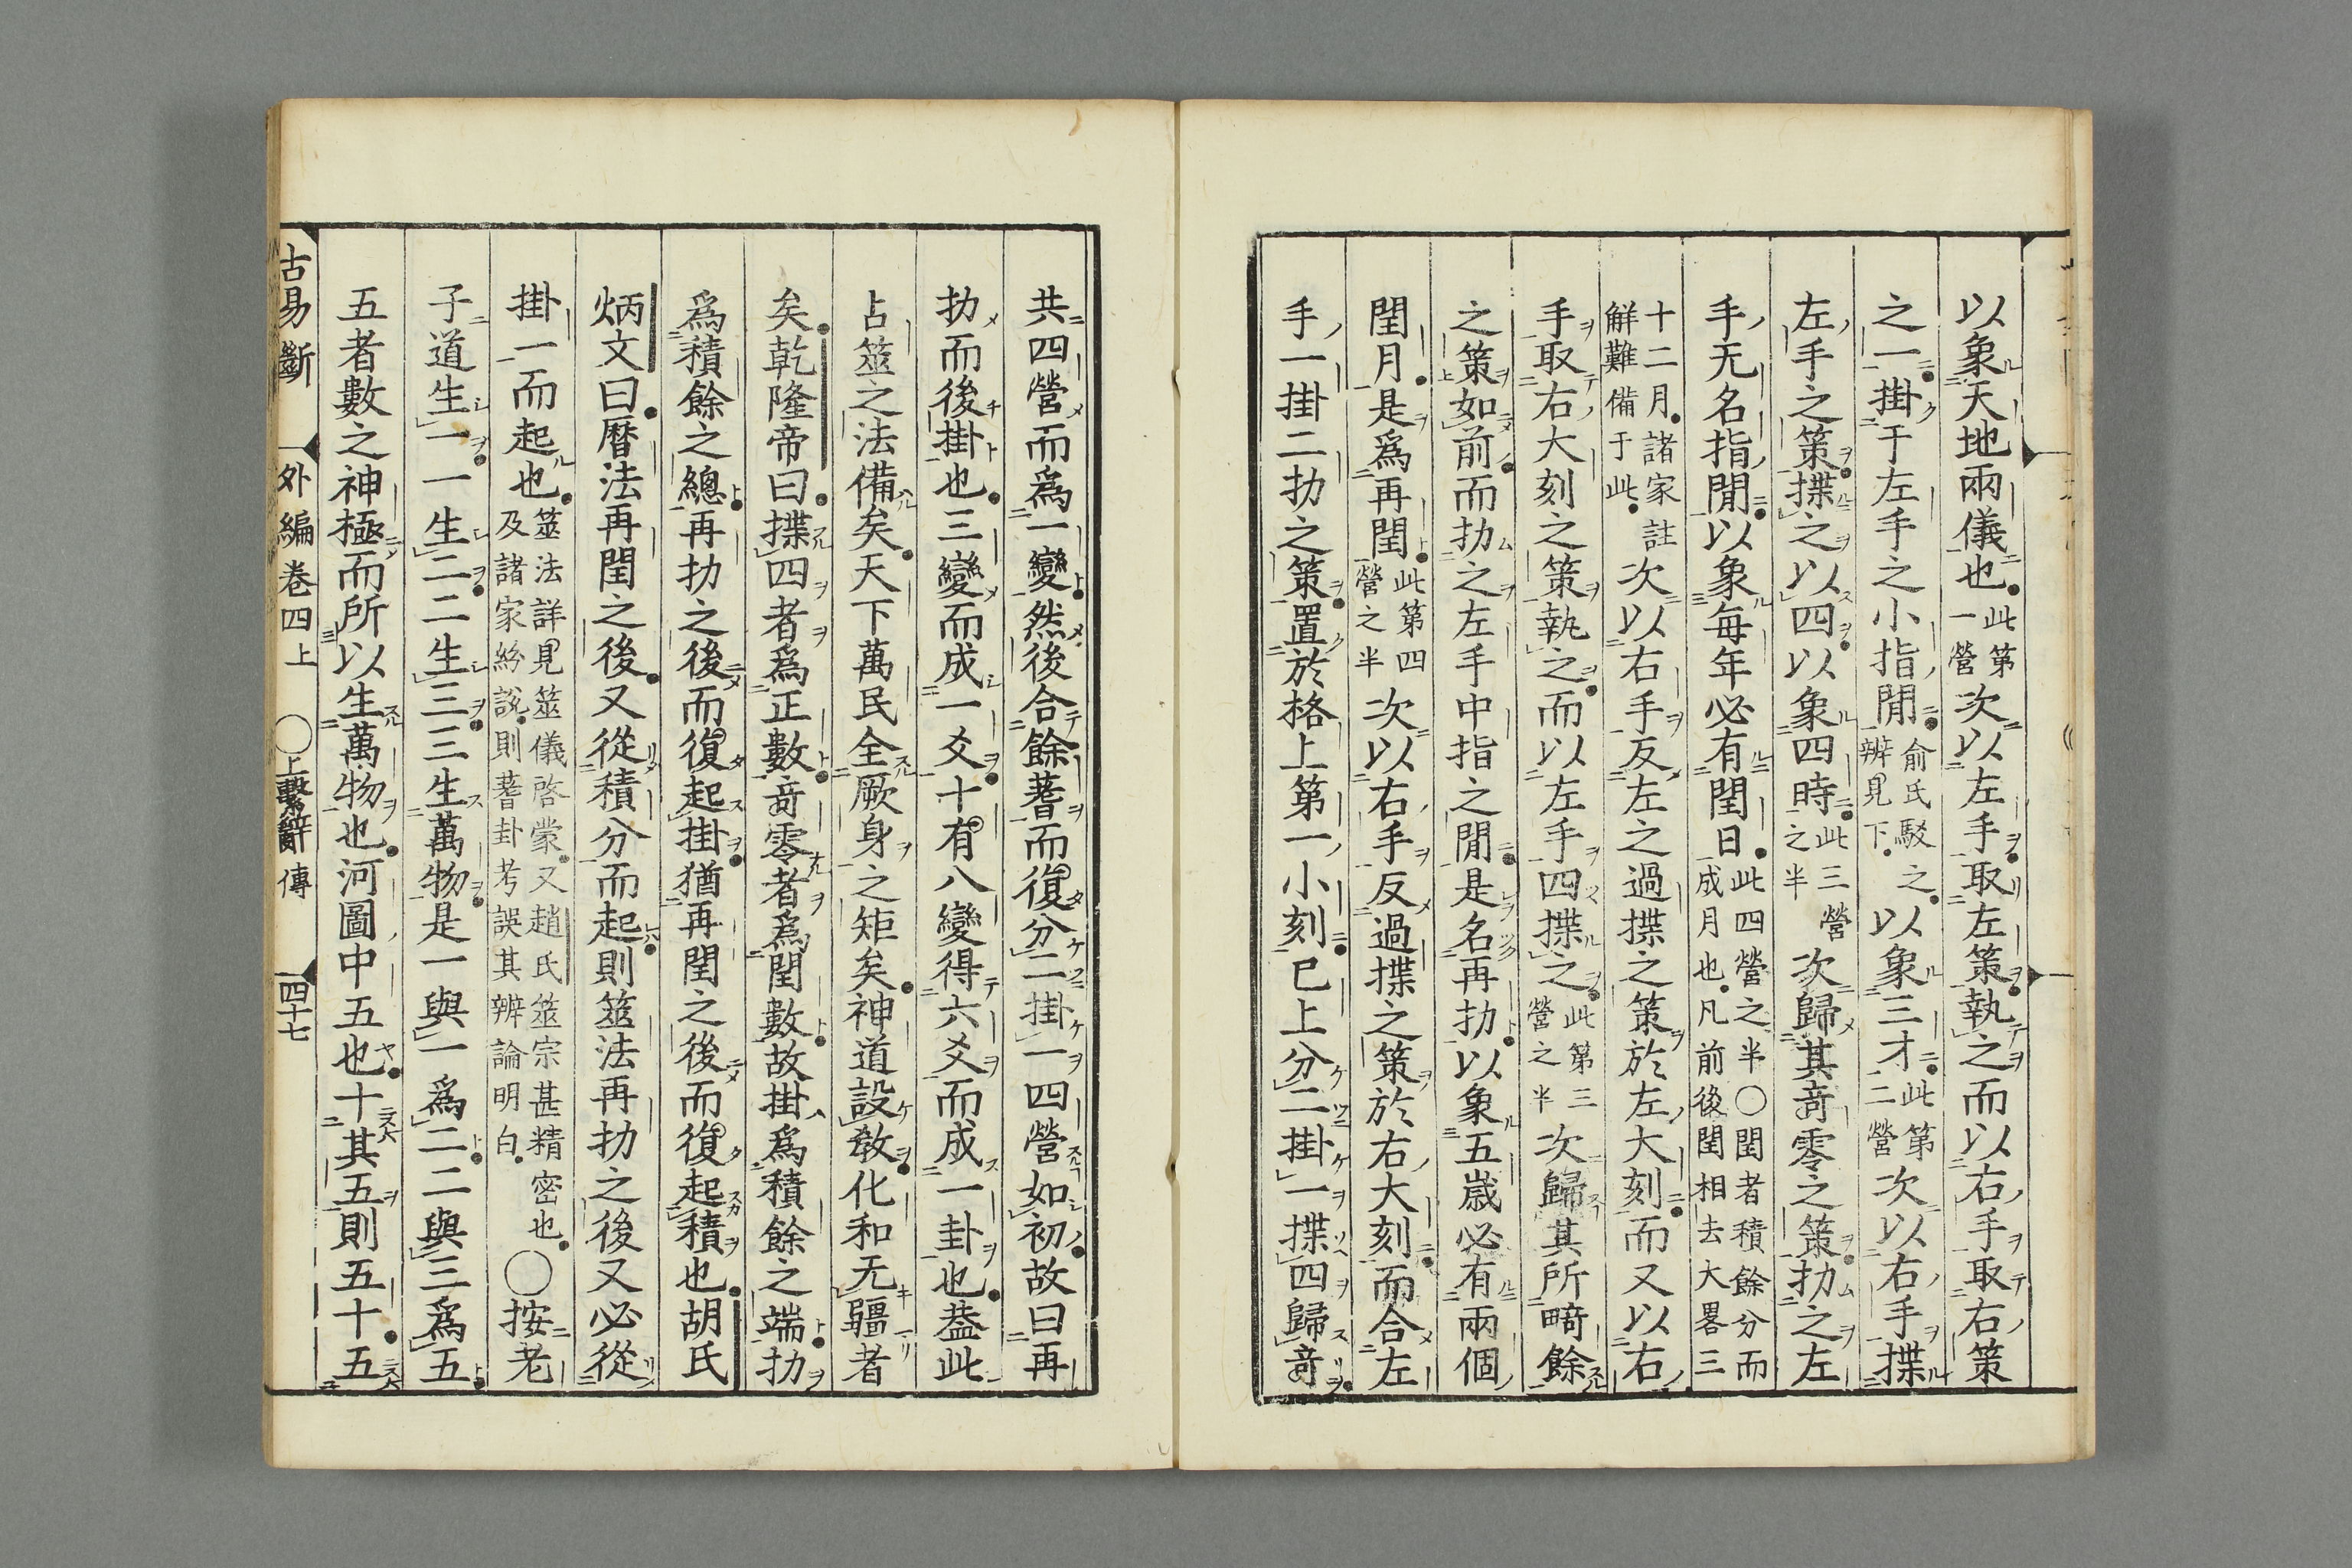 以象天地兩儀也此第一營次以左手取左策執之而以右手取右策
之一掛于左手之小指閒俞氏駁之辨見下以象三才此第二營次以右手揲
左手之策揲之以四以象四時此三營之半次歸其奇零之策扐之左
手无名指閒以象每年必有閏日此四營之半〇閏者積餘分而成月也凡前後閏相去大畧三
十二月諸家註解難備于此次以右手反左之過揲之策於左大刻而又以右
手取右大刻之策執之而以左手四揲之此第三營之半次歸其所畸餘
之策如前而扐之左手中指之閒是名再扐以象五歲必有兩個
閏月是爲再閏此第四營之半次以右手反過揲之策於右大刻而合左
手一掛二扐之策置於格上第一小刻已上分二掛一揲四歸奇
共四營而爲一變然後合餘蓍而復分二掛一四營如初故曰再
扐而後掛也三變而成一爻十有八變得六爻而成一卦也葢此
占筮之法備矣天下萬民全厥身之矩矣神道設教化和无疆者
矣乾隆帝曰揲四者爲正數奇零者爲閏數故掛爲積餘之端扐
爲積餘之總再扐之後而復起掛猶再閏之後而復起積也胡氏
炳文曰曆法再閏之後又從積分而起則筮法再扐之後又必從
掛一而起也筮法詳見筮儀啓蒙又趙氏筮宗甚精密也及諸家紛說則蓍卦考誤其辨論明白〇按老
子道生一一生二二生三三生萬物是一與一爲二二與三爲五
五者數之神極而所以生萬物也河圖中五也十其五則五十五
古易斷 外編卷四上 〇上繫辭傳 四十七